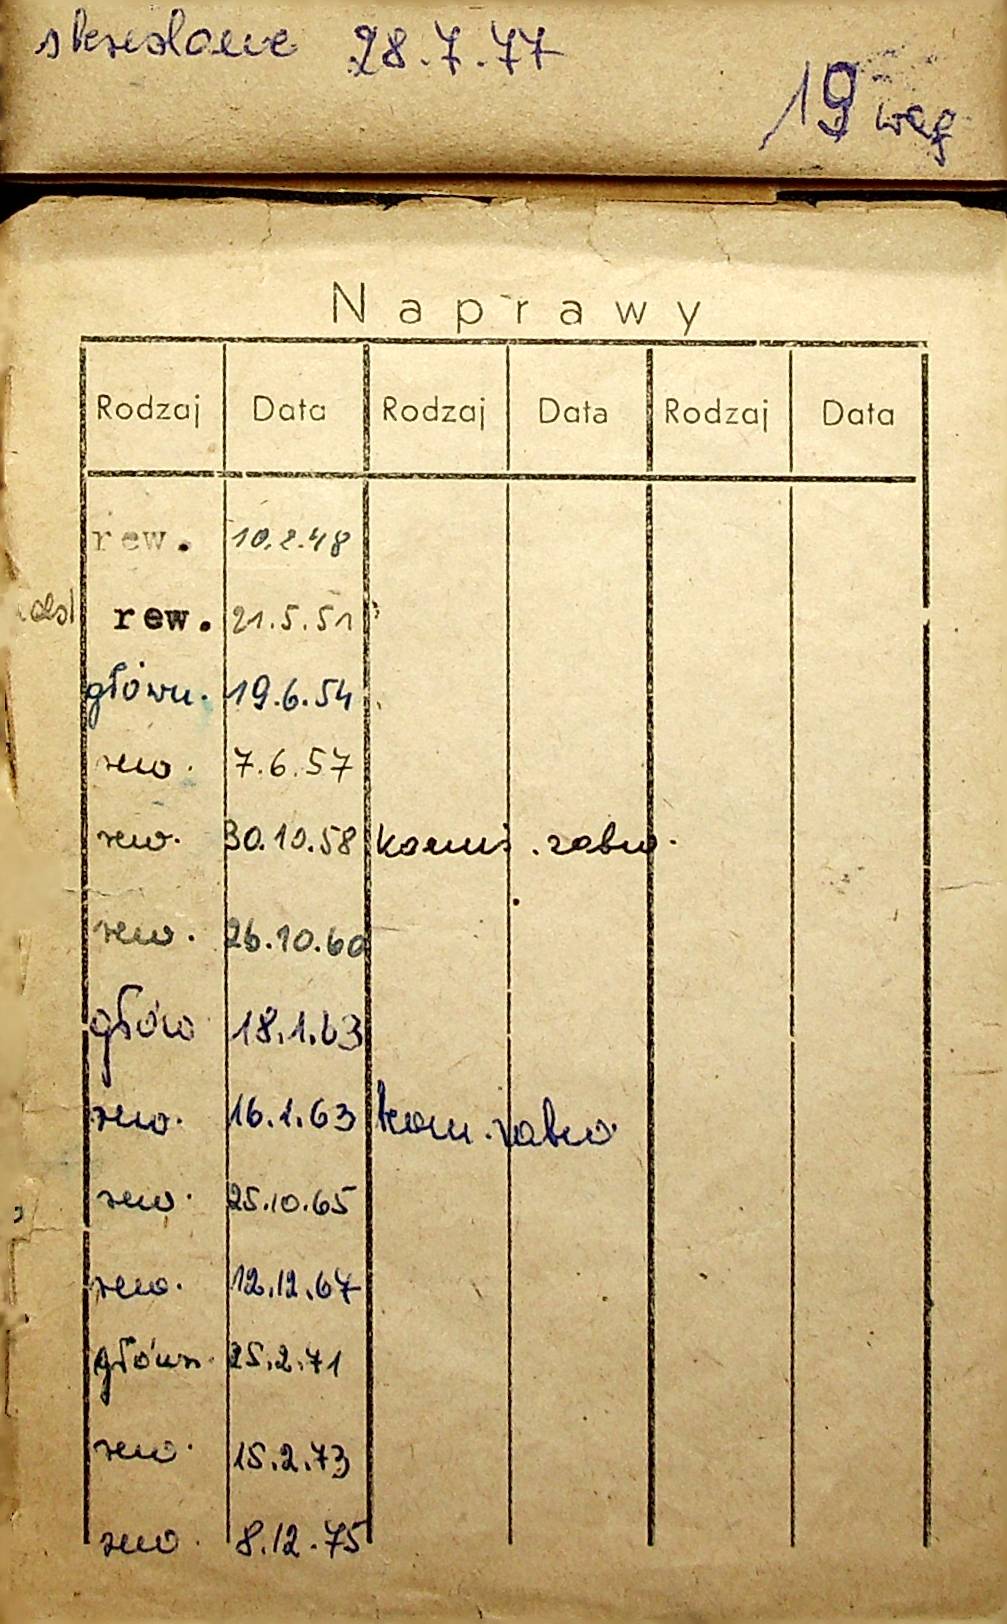 skreślone 28.7.77
19 wag
Naprawy
Rodzaj Data Rodzaj Data Rodzaj Data
rew. 10.2.48
rew. 21.5.51
główn. 19.6.54
rew. 7.6.57
rew. 30.10.58
rew. 26.10.60
główn 18.1.63
rew. 16.1.63
rew. 25.10.65
rew. 12.12.67
główn. 25.2.71
rew. 15.2.73
rew. 8.12.75